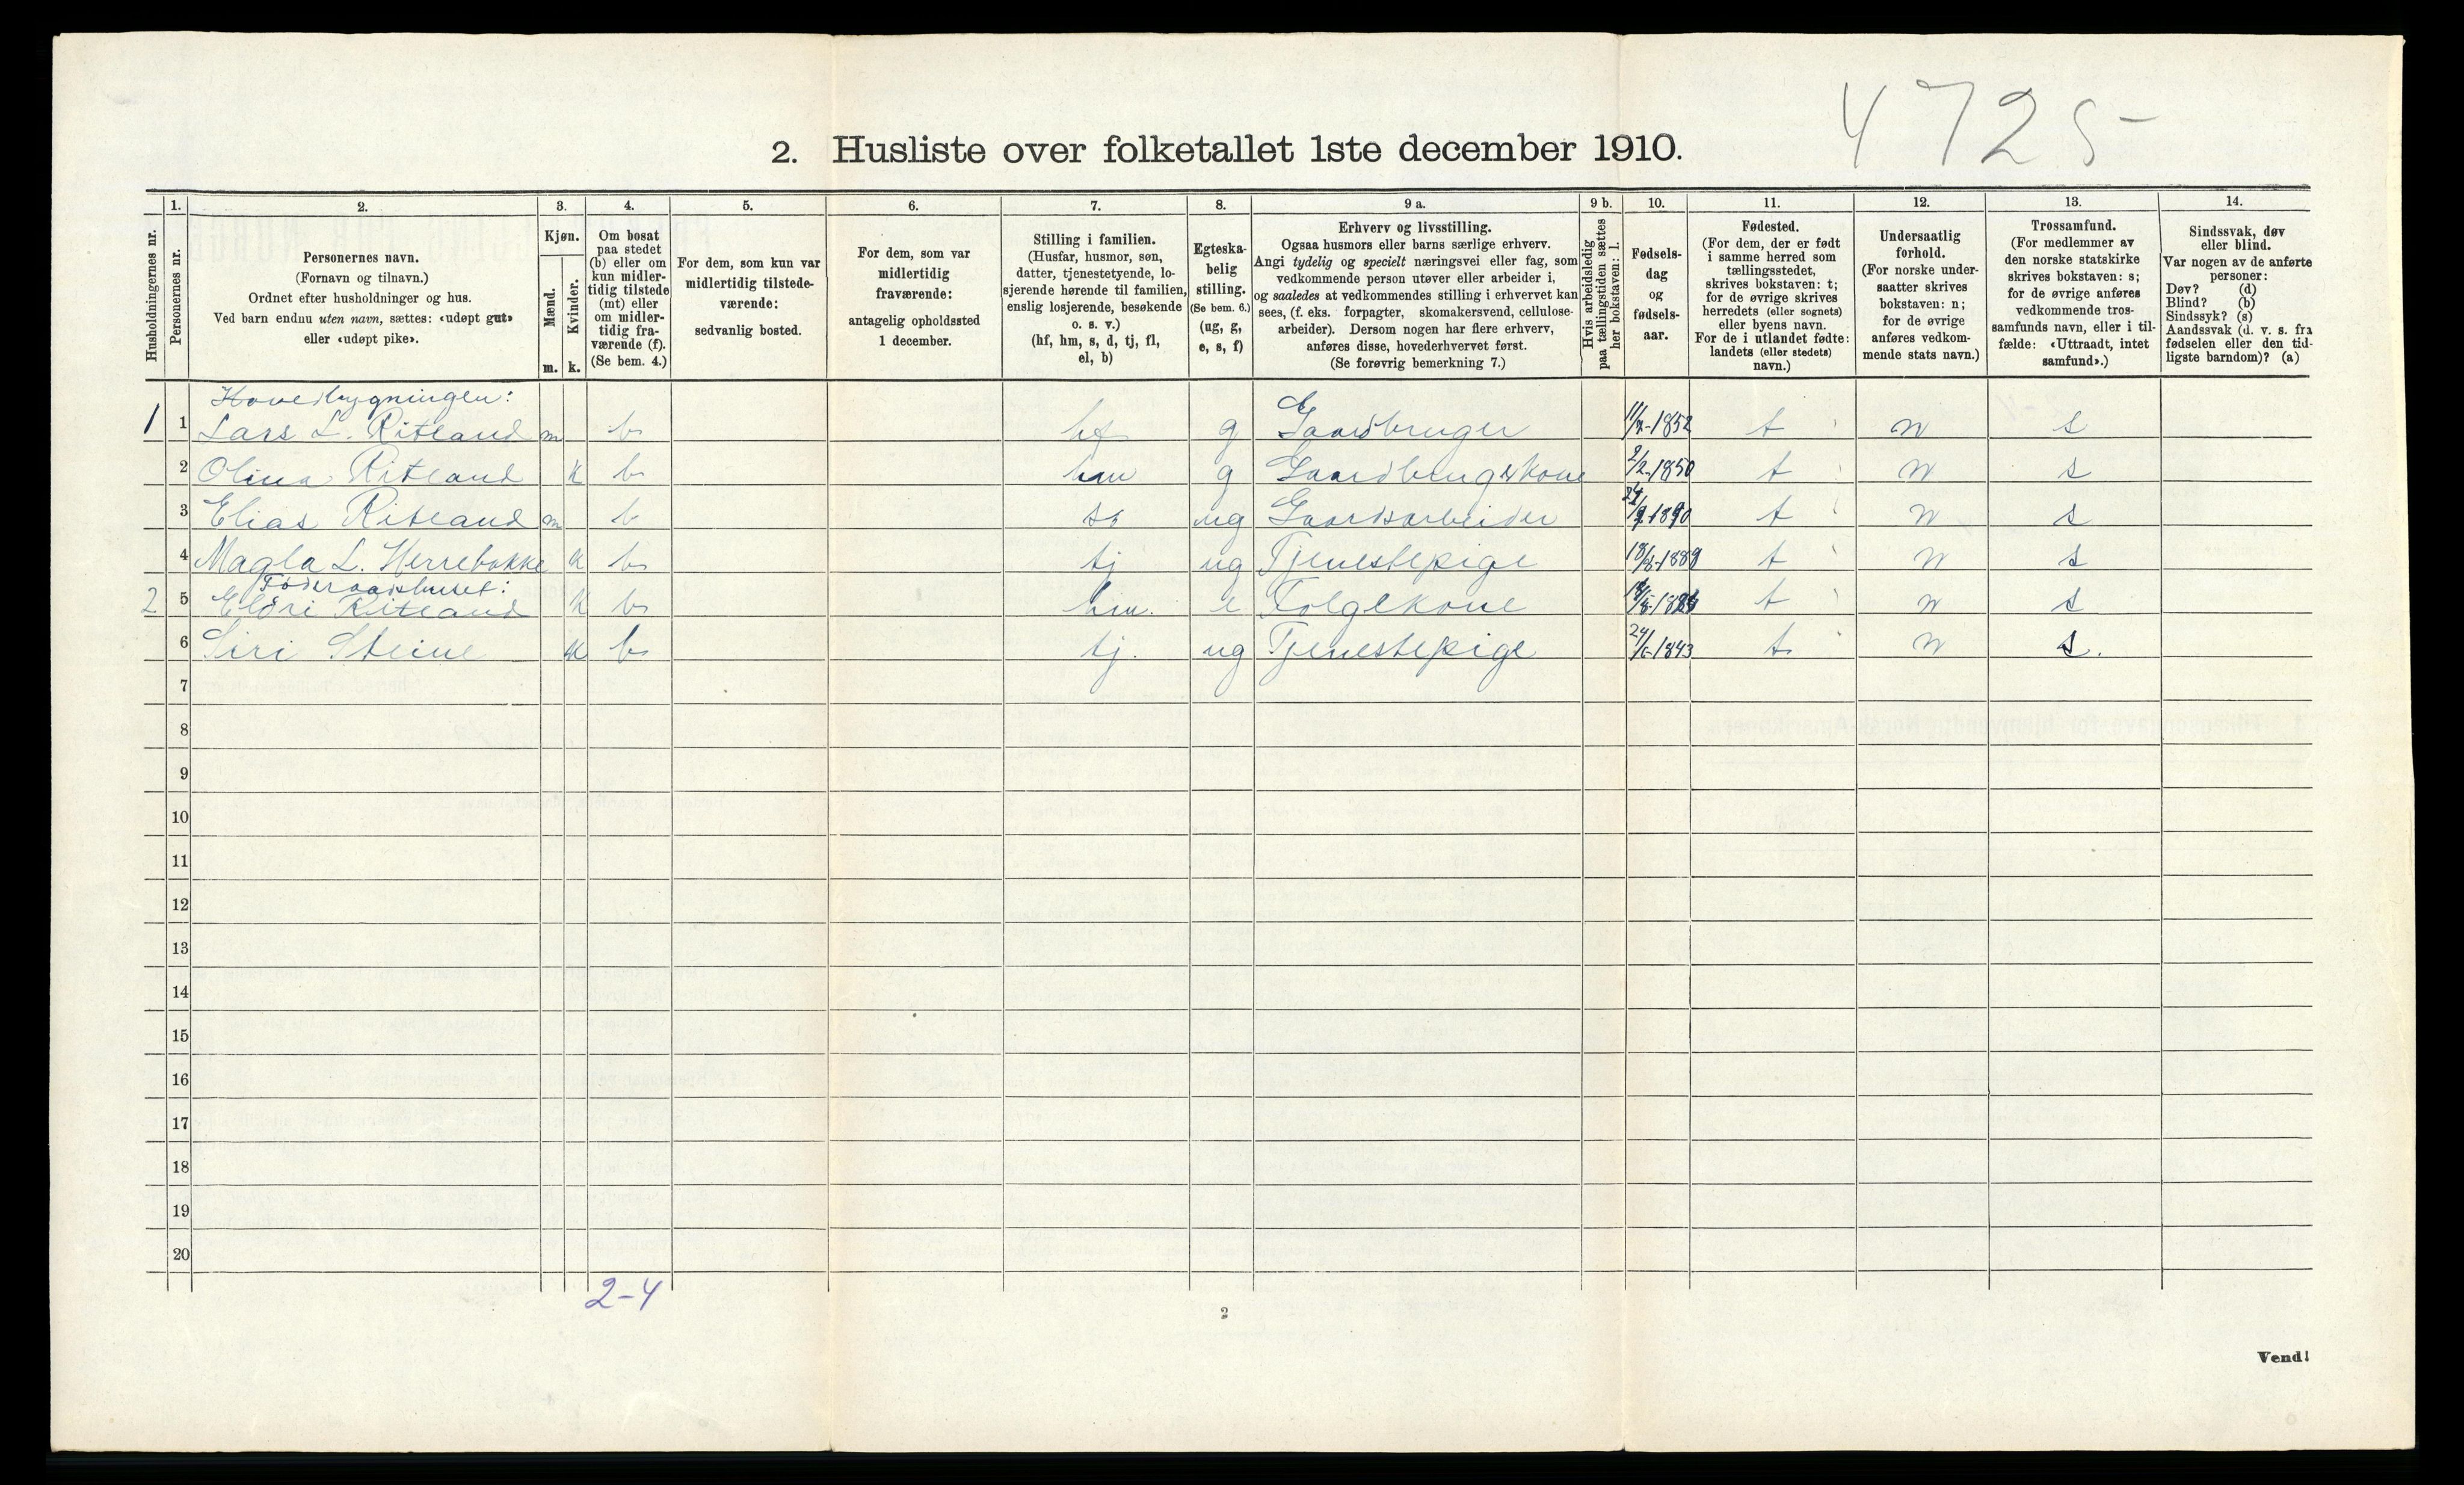 4725
2. Husliste over folketallet 1ste december 1910.
Husholdningernes nr.
1.
Personernes nr.
2.
Personernes navn.
(Fornavn og tilnavn.)
Ordnet efter husholdninger og hus.
Ved barn endnu uten navn, sættes: «udøpt gut»
eller «udøpt pike».
3.
Kjøn.
Mænd.
Kvinder.
m. k.
4.
Om bosat
paa stedet
(b) eller om
kun midler-
tidig tilstede
(mt) eller
om midler-
tidig fra-
værende (f).
(Se bem. 4.)
5.
For dem, som kun var
midlertidig tilstede-
værende:
sedvanlig bosted.
6.
For dem, som var
midlertidig
fraværende:
antagelig opholdssted
1 december.
7.
Stilling i familien.
(Husfar, husmor, søn,
datter, tjenestetyende, lo-
sjerende hørende til familien,
enslig losjerende, besøkende
o. s. v.)
(hf, hm, s, d, tj, fl,
el, b)
8.
Egteska-
belig
stilling.
(Se bem. 6.)
(ug, g,
e, s, f)
9 a.
Erhverv og livsstilling.
Ogsaa husmors eller barns særlige erhverv.
Angi tydelig og specielt næringsvei eller fag, som
vedkommende person utøver eller arbeider i,
og saaledes at vedkommendes stilling i erhvervet kan
sees, (f. eks. forpagter, skomakersvend, cellulose-
arbeider). Dersom nogen har flere erhverv,
anføres disse, hovederhvervet først.
(Se forøvrig bemerkning 7.)
9 b.
Hvis arbeidsledig
paa tællingstiden sættes
her bokstaven: l.
10.
Fødsels-
dag
og
fødsels-
aar.
11.
Fødested.
(For dem, der er født
i samme herred som
tællingsstedet,
skrives bokstaven: t;
for de øvrige skrives
herredets (eller sognets)
eller byens navn.
For de i utlandet fødte:
landets (eller stedets)
navn.)
12.
Undersaatlig
forhold.
(For norske under-
saatter skrives
bokstaven: n;
for de øvrige
anføres vedkom-
mende stats navn.)
13.
Trossamfund.
(For medlemmer av
den norske statskirke
skrives bokstaven: s;
for de øvrige anføres
vedkommende tros-
samfunds navn, eller i til-
fælde: «Uttraadt, intet
samfund».)
14.
Sindssvak, døv
eller blind.
Var nogen av de anførte
personer:
Døv? (d)
Blind? (b)
Sindssyk? (s)
Aandssvak (d. v. s. fra
fødselen eller den tid-
ligste barndom)? (a)
Hovedbygningen:
1 1 Lars L. Ritland m b hf g Gaardbruger 1852 t n s
2 Olina Ritland k b hm g Gaardbrugerkone 2/2-1850 t n s
3 Elias Ritland m b s ug Gaardsarbeider 1890 t n s
4 Magla L. Herrebokke k b tj ug Tjenestepige 18/8-1889 t n s
Føderaadshuset:
2 5 Eldri Ritland k b hm. e Folgekone t n s
6 Siri Steine k b tj. ug Tjenestepige 24/6-1843 t n s.
7
8
9
10
11
12
13
14
15
16
17
18
19
20
2-4
2
Vend!